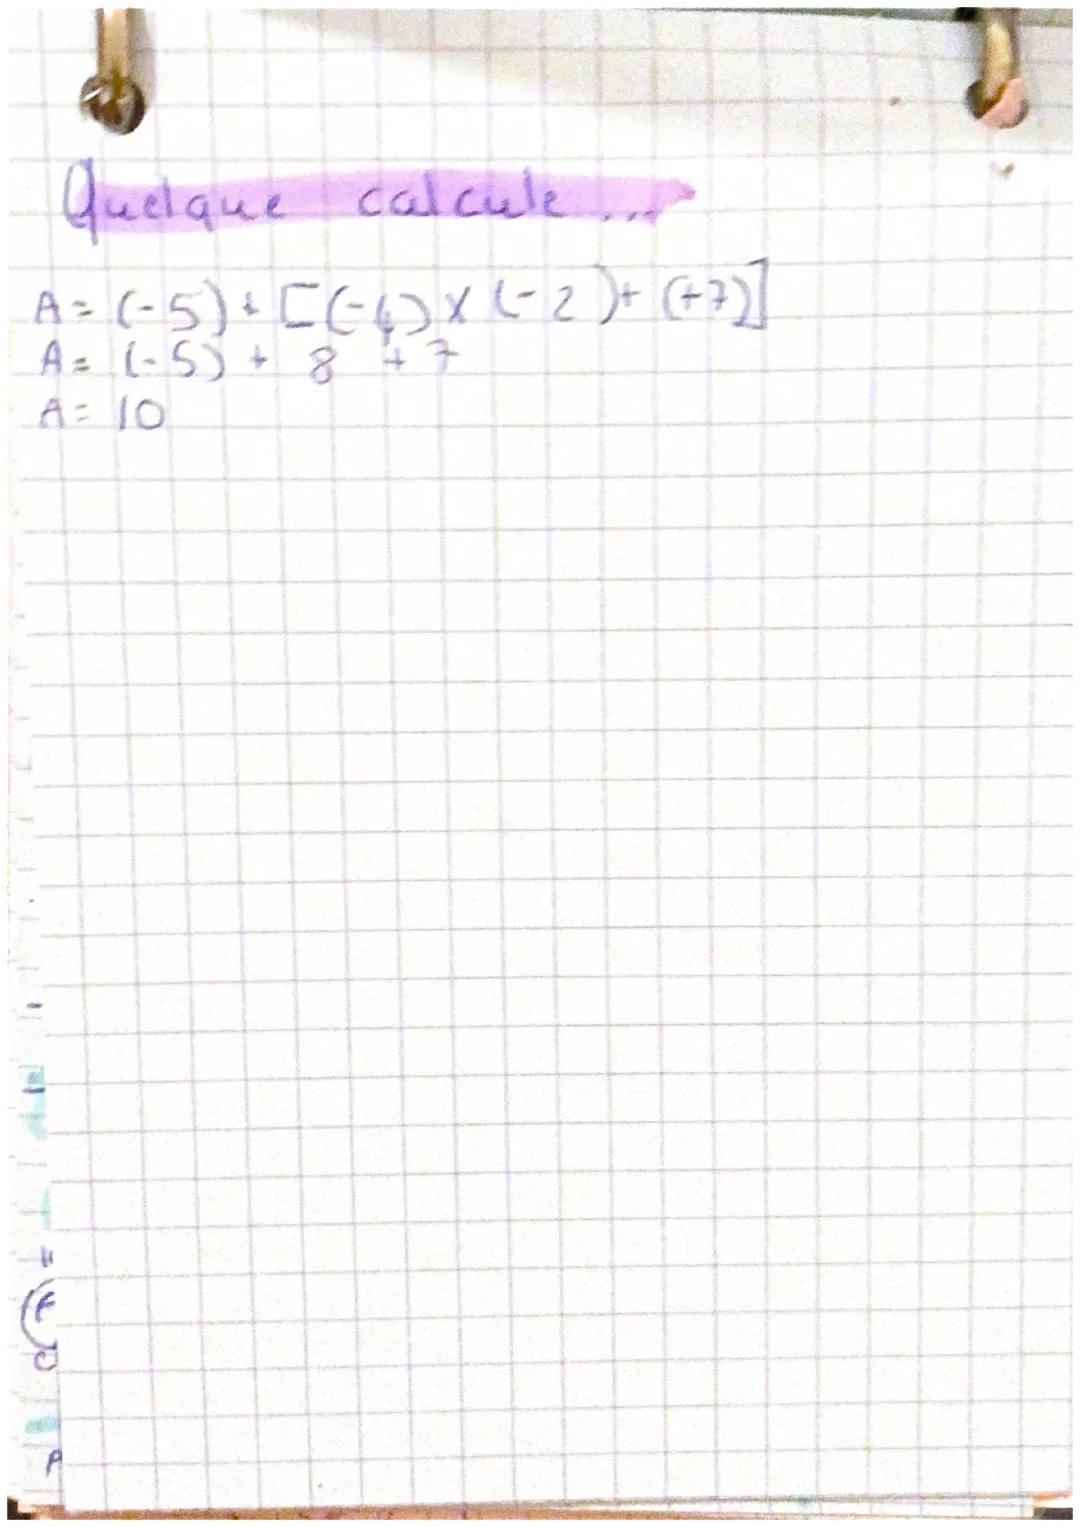 Quelque calcule ...
A = (-5) + [(-4) x (-2) + (+7)]
A = (-5) + 8 + 7
A = 10